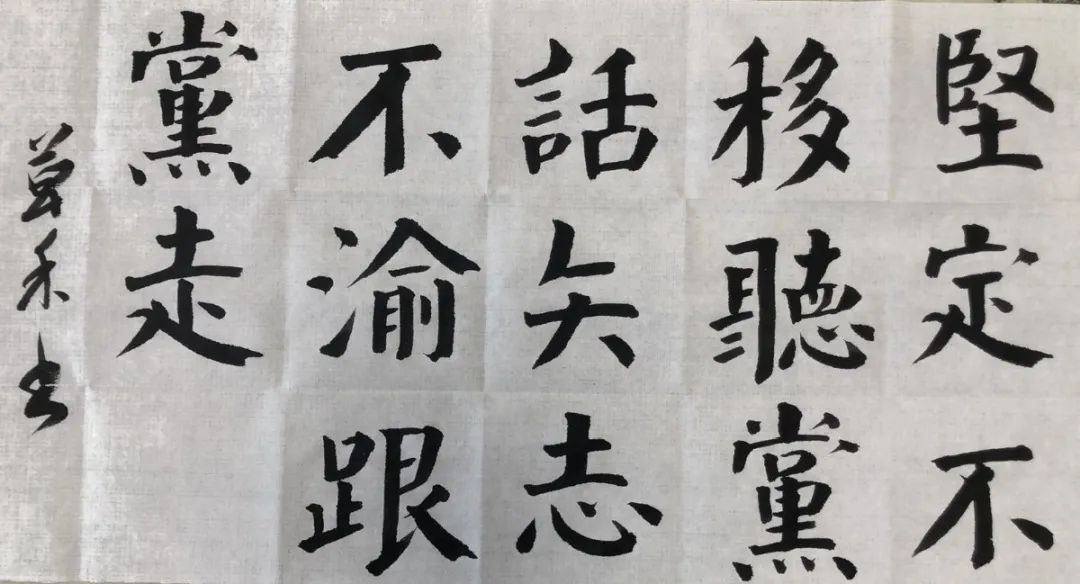 堅定不
移聽黨
話矢志
不渝跟
黨走
禾书